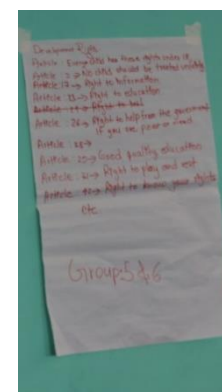 Development Rights
Article : Every child has these rights under 18
Article : 2 → No child should be treated unfairly
Article 17 → Right to Information
Article 23 → Right to education
Article : 26 → Right to help from the government
if you are poor or
Article : 28 →
Article : 29 → Good quality education
Article : 31 → Right to play and rest
Article : 42 → Right to know your rights
etc.
Group: 5 & 6